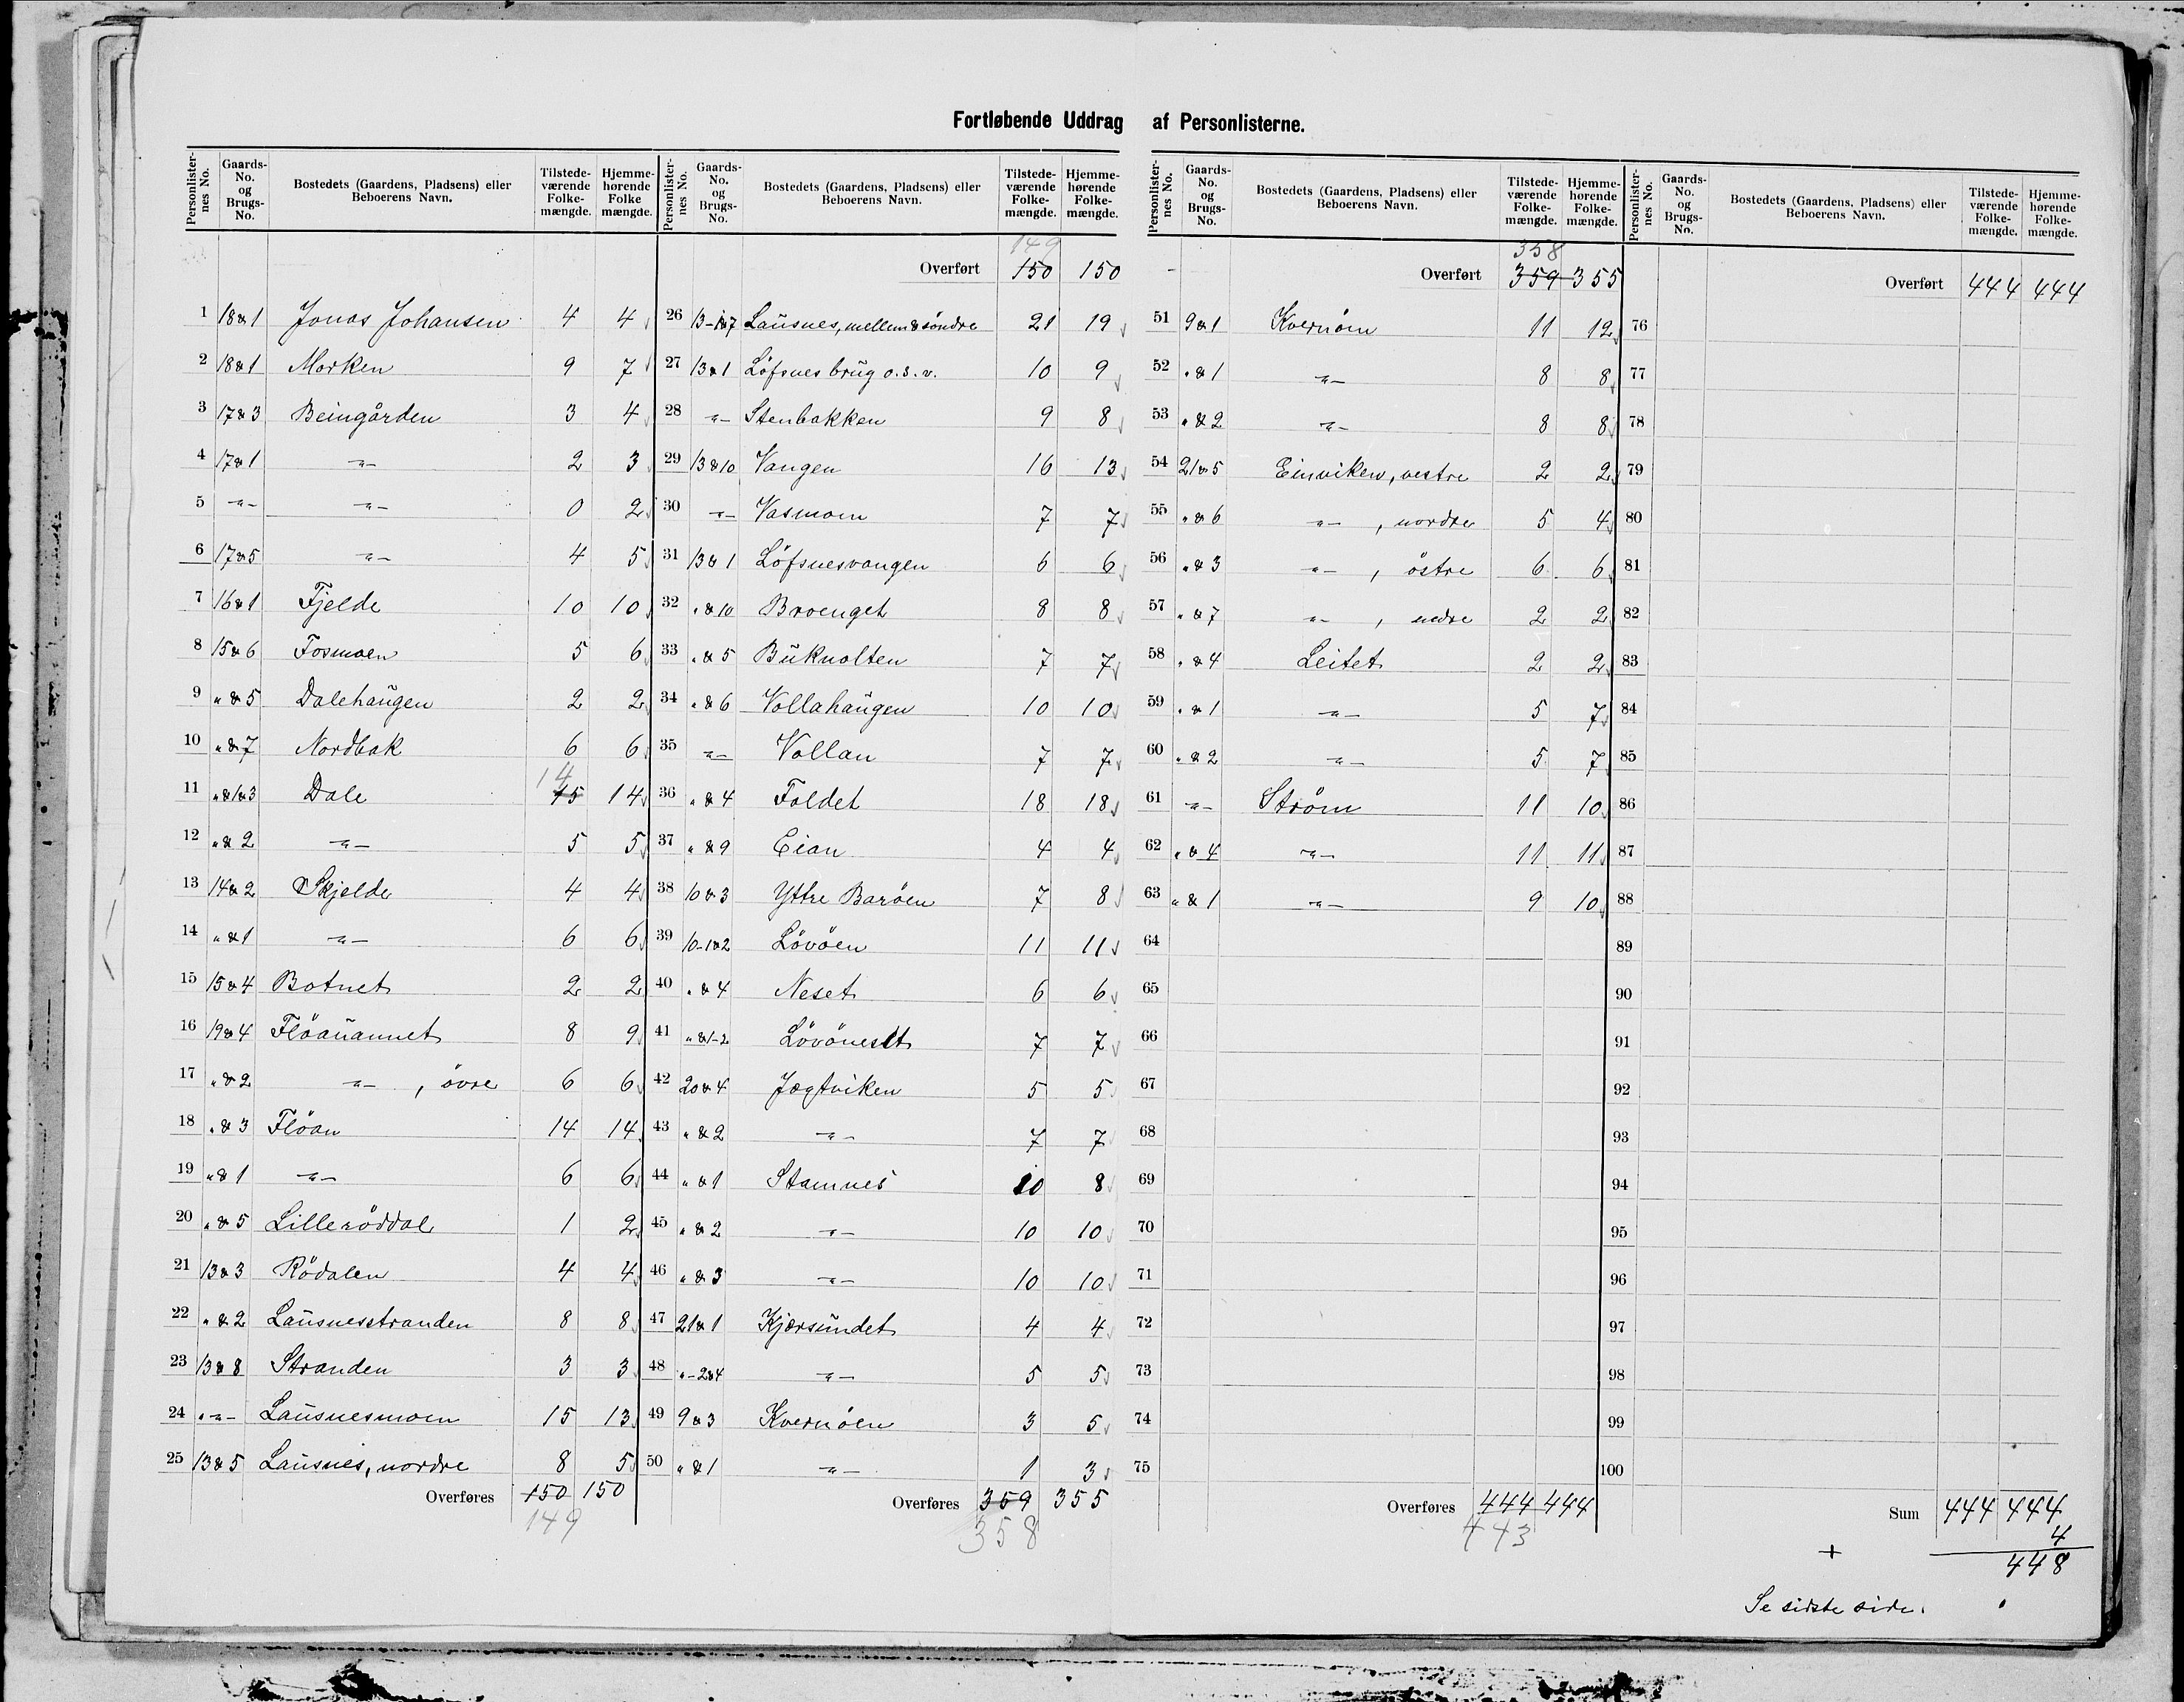 Fortløbende Uddrag af Personlisterne.
Personlister-nes No. Gaards-No. og Brugs-No. Bostedets (Gaardens, Pladsens) eller Beboerens Navn. Tilstede-værende Folke-mængde. Hjemme-hørende Folke mængde.
1 18&1 Jonas Johansen 4 4
2 18&1 Morken 9 7
3 17&3 Beingården 3 4
4 17&1 -"- 2 3
5 -"- -"- 0 2
6 17&5 -"- 4 5
7 16&1 Fjelde 10 10
8 15&6 Fosmoen 5 6
9 " & 5 Dalehaugen 2 2
10 " & 7 Nordbak 6 6
11 " & 1&3 Dale 15 14 14
12 " & 2 -"- 5 5
13 14&2 Skjelde 4 4
14 " & 1 -"- 6 6
15 15&4 Botnet 2 2
16 19&4 Flöanannet 8 9
17 " & 2 -"- , övre 6 6
18 " & 3 Flöan 14 14
19 " & 1 -"- 6 6
20 " & 5 Lilleröddal 1 2
21 13&3 Rödalen 4 4
22 " & 2 Lausnesstranden 8 8
23 13&8 Stranden 3 3
24 -"- Lausnesmoen 15 13
25 13&5 Lausnes, nordre 8 5
Overføres 150 150
149
Personlister-nes No. Gaards-No. og Brugs-No. Bostedets (Gaardens, Pladsens) eller Beboerens Navn. Tilstede-værende Folke-mængde. Hjemme-hørende Folke-mængde.
149
Overført 150 150
26 13-1&7 Lausnes, mellem & söndre 21 19
27 13&1 Löfsnes brug o.s.v. 10 9
28 -"- Stenbakken 9 8
29 13&10 Vangen 16 13
30 -"- Vasmoen 7 7
31 13&1 Löfsnesvangen 6 6
32 " & 10 Broenget 8 8
33 " & 5 Buknolten 7 7
34 " & 6 Vollahaugen 10 10
35 -"- Vollan 7 7
36 " & 4 Foldet 18 18
37 " & 9 Eian 4 4
38 10&3 Yttre Baröen 7 8
39 10-1&2 Lövöen 11 11
40 " & 4 Neset 6 6
41 " & 1-2 Lövöneset 7 7
42 20&4 Jægtviken 5 5
43 " & 2 -"- 7 7
44 " & 1 Stamnes 10 8
45 " & 2 -"- 10 10
46 " & 3 -"- 10 10
47 21&1 Kjærsundet 4 4
48 "-2&4 -"- 5 5
49 9&3 Kvernöen 3 5
50 " & 1 -"- 1 3
Overføres 359 355
358
Personlister-nes No. Gaards-No. og Brugs-No. Bostedets (Gaardens, Pladsens) eller Beboerens Navn. Tilstede-værende Folke-mængde. Hjemme-hørende Folke-mængde.
358
Overført 359 355
51 9&1 Kvernöen 11 12
52 " & 1 -"- 8 8
53 " & 2 -"- 8 8
54 21&5 Einviken, vestre 2 2
55 " & 6 -"- , nordre 5 4
56 " & 3 -"- , östre 6 6
57 " & 7 -"- , nedre 2 2
58 " & 4 Leitet 2 2
59 " & 1 -"- 5 7
60 " & 2 -"- 5 7
61 -"- Ström 11 10
62 " & 4 -"- 11 11
63 " & 1 -"- 9 10
64
65
66
67
68
69
70
71
72
73
74
75
Overføres 444 444
443
Personlister-nes No. Gaards-No. og Brugs-No. Bostedets (Gaardens, Pladsens) eller Beboerens Navn. Tilstede-værende Folke-mængde. Hjemme-hørende Folke-mængde.
Overført 444 444
76
77
78
79
80
81
82
83
84
85
86
87
88
89
90
91
92
93
94
95
96
97
98
99
100
Sum 444 444
+ 4
448
Se sidste side.